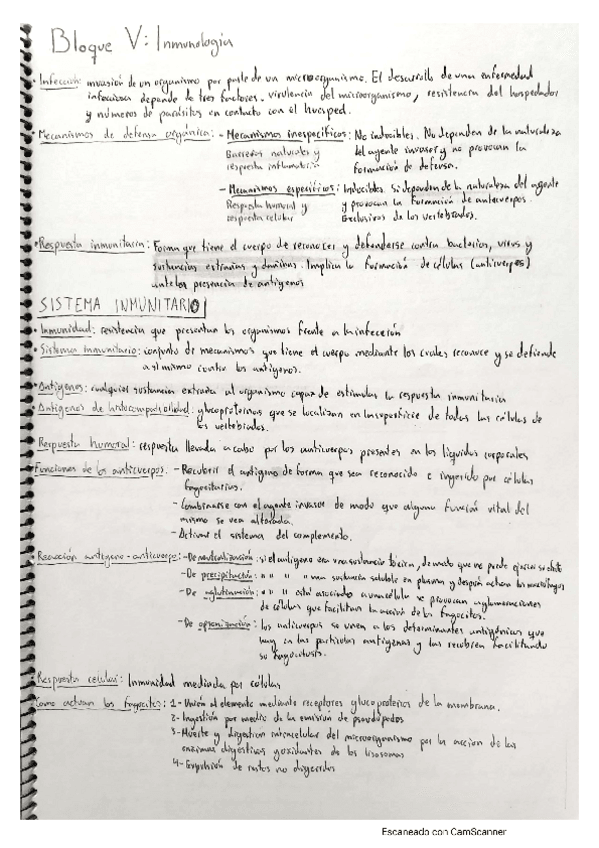 Bloque V: Inmunología
• Infección: invasión de un organismo por parte de un microorganismo. El desarrollo de una enfermedad
infecciosa depende de tres factores. virulencia del microorganismo, resistencia del hospedador
y números de parásitos en contacto con el huésped.
• Mecanismos de defensa orgánica: - Mecanismos inespecíficos: No inducibles. No dependen de la naturaleza
Barreras naturales y del agente invasor y no provocan la
respuesta inflamatoria formación de defensa.
- Mecanismos específicos: Inducibles. si dependen de la naturaleza del agente
Respuesta humoral y y provocan la formación de anticuerpos.
respuesta celular Exclusivos de los vertebrados.
• Respuesta inmunitaria: Forma que tiene el cuerpo de reconocer y defenderse contra bacterias, virus y
sustancias extrañas y dañinas. Implica la formación de células (anticuerpos)
ante la presencia de antígenos
SISTEMA INMUNITARIO
• Inmunidad: resistencia que presentan los organismos frente a la infección
• Sistema inmunitario: conjunto de mecanismos que tiene el cuerpo mediante los cuales reconoce y se defiende
a si mismo contra los antígenos.
• Antígenos: cualquier sustancia extraña al organismo capaz de estimular la respuesta inmunitaria
• Antígenos de histocompatibilidad: glucoproteínas que se localizan en la superficie de todas las células de
los vertebrados.
Respuesta humoral: respuesta llevada a cabo por los anticuerpos presentes en los líquidos corporales
Funciones de los anticuerpos: - Recubrir el antígeno de forma que sea reconocido e ingerido por células
fagocitarias.
- Combinarse con el agente invasor de modo que alguna función vital del
mismo se vea alterada.
- Activar el sistema del complemento.
Reacción antígeno-anticuerpo: - De neutralización: si el antígeno era una sustancia tóxica, de modo que no puede ejercer su efecto
- De precipitación: " " " una sustancia soluble en plasma y después actúan los macrófagos
- De aglutinación: " " " está asociado a una célula se provocan aglomeraciones
de células que facilitan la acción de los fagocitos.
- De opsonización: los anticuerpos se unen a los determinantes antigénicos que
hay en las partículas antígenas y las recubren facilitando
su fagocitosis.
Respuesta celular: Inmunidad mediada por células
Como actúan los fagocitos: 1- Unión al elemento mediante receptores glucoproteicos de la membrana.
2- Ingestión por medio de la emisión de pseudópodos
3- Muerte y digestión intracelular del microorganismo por la acción de las
enzimas digestivas y oxidantes de los lisosomas
4- Expulsión de restos no digeridos
Escaneado con CamScanner